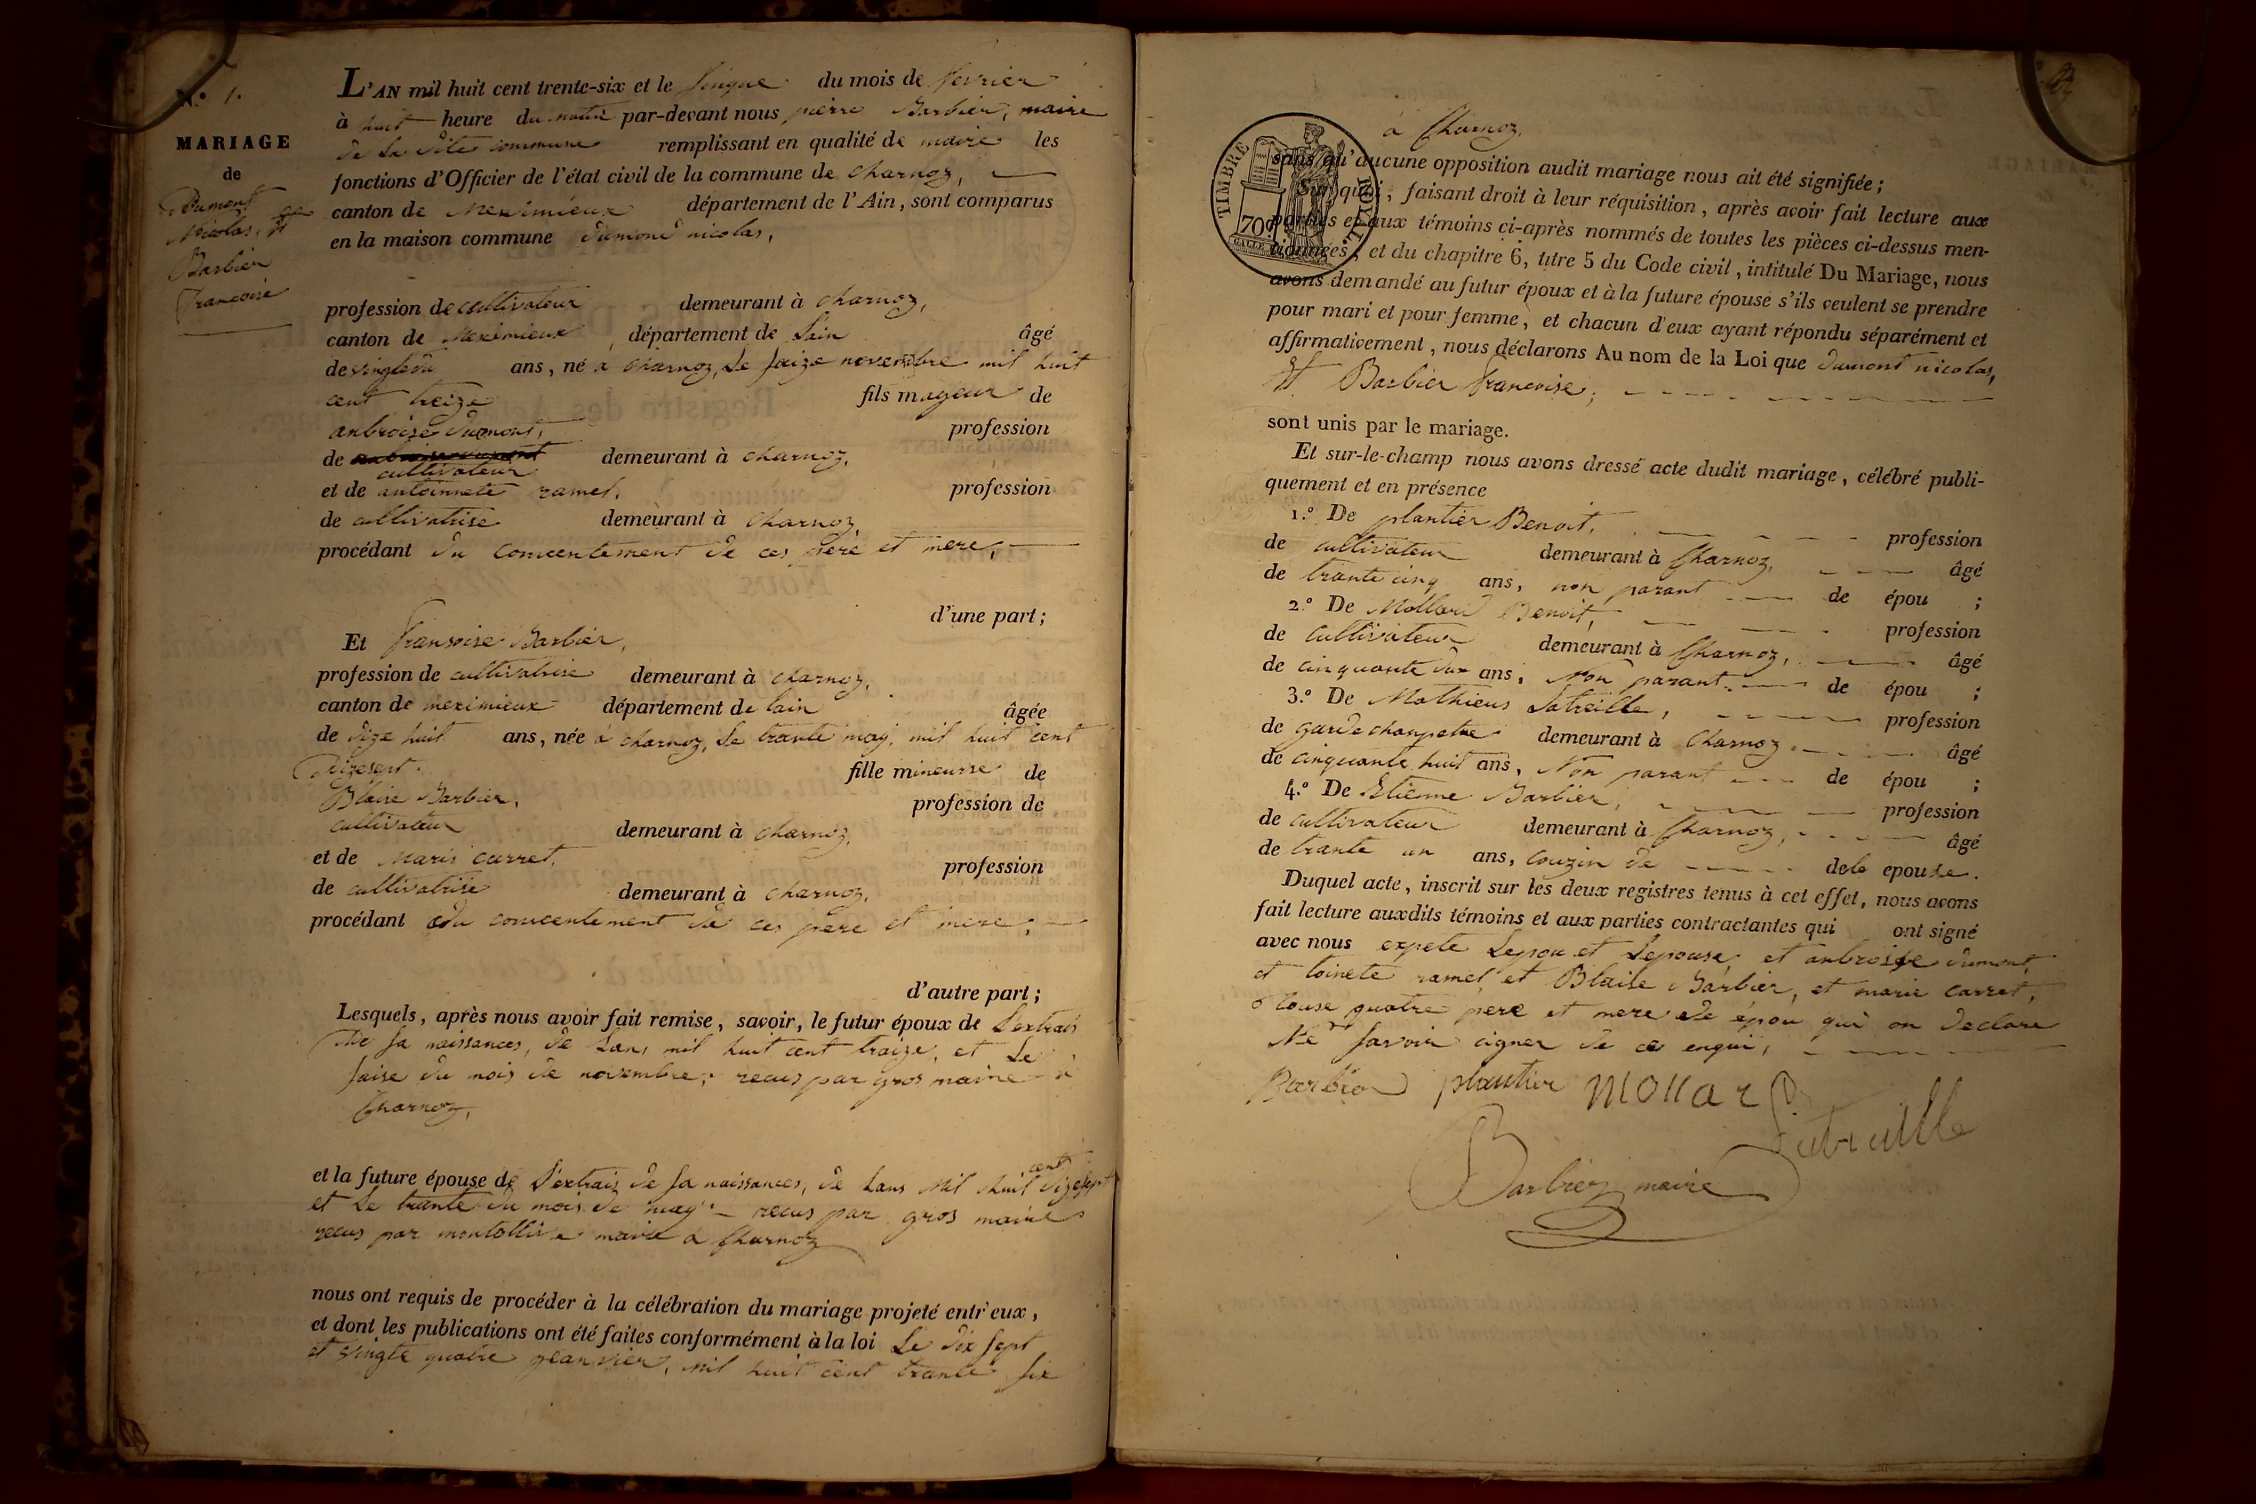 N.º 1.
MARIAGE
de
Dumont
Nicolas, et
Barbier
Francoise
L'AN mil huit cent trente-six et le sinque du mois de fevrier
à huit heure du matin par-devant nous pierre Barbier, maire
de la dite commune remplissant en qualité de maire les
fonctions d'Officier de l'état civil de la commune de charnoz,
canton de Meximieux département de l'Ain, sont comparus
en la maison commune dumond nicolas,
profession de cultivateur demeurant à charnoz,
canton de Meximieux département de Lain âgé
de vingtedu ans, né a charnoz, le saize novembre mil huit
cent treize fils majeur de
anbroise dumont, profession
de cultivateur demeurant à charnoz,
et de antoinnete ramel, profession
de cultivatrise demeurant à charnoz,
procédant du concentement de ces père et mere,
d'une part;
Et fransoise Barbier,
profession de cultivatrise demeurant à charnoz,
canton de meximieux département de lain âgée
de dize huit ans, née à charnoz, le trante may, mil huit cent
dizesept. fille mineurre de
Blaise Barbier, profession de
cultivateur demeurant à charnoz,
et de Marie carret, profession
de cultivatrise demeurant à charnoz,
procédant du concentement de ces père et mere,
d'autre part;
Lesquels, après nous avoir fait remise, savoir, le futur époux de Lextrais
de sa naissances, de Lans mil huit cent traize, et Le
saise du mois de novembre, recus par gros maire à
Charnoz,
et la future épouse de Lextrais de sa naissances, de Lans Mil huit cent dizesept
et Le trante du mois de may recus par gros maire
recus par maire a Charnoz
nous ont requis de procéder à la célébration du mariage projeté entr'eux,
et dont les publications ont été faites conformément à la loi Le dix sept
et vingte quatre jeanvier, mil huit cent trante six
à Charnoz,
TIMBRE ROYAL.
70
sans qu'aucune opposition audit mariage nous ait été signifiée;
Sur quoi, faisant droit à leur réquisition, après avoir fait lecture aux
parties et aux témoins ci-après nommés de toutes les pièces ci-dessus men-
tionnées, et du chapitre 6, titre 5 du Code civil, intitulé Du Mariage, nous
avons demandé au futur époux et à la future épouse s'ils veulent se prendre
pour mari et pour femme, et chacun d'eux ayant répondu séparément et
affirmativement, nous déclarons Au nom de la Loi que dumont nicolas,
et Barbier francoise,
sont unis par le mariage.
Et sur-le-champ nous avons dressé acte dudit mariage, célébré publi-
quement et en présence
1.º De plantier Benoit, profession
de cultivateur demeurant à Charnoz, âgé
de trante cinq ans, non parant de épou ;
2.º De Mollard Benoit, profession
de cultivateur demeurant à Charnoz, âgé
de cinquante dux ans, Non parant de épou ;
3.º De Mathieus Latreille, profession
de garde chanpetre demeurant à Charnoz âgé
de cinquante huit ans, Non parant de épou ;
4.º De Etienne Barbier, profession
de cultivateur demeurant à Charnoz, âgé
de trante un ans, couzin de dele epouse.
Duquel acte, inscrit sur les deux registres tenus à cet effet, nous avons
fait lecture auxdits témoins et aux parties contractantes qui ont signé
avec nous expete Lepou et Lepouse et anbroise dumont,
et toinete ramel et Blaise Barbier, et marie carret,
touse quatre pere et mere de épou qui on declare
Ne savoir cigner de ce enqui,
Barbier plantier mollard
Latreille
Barbier maire